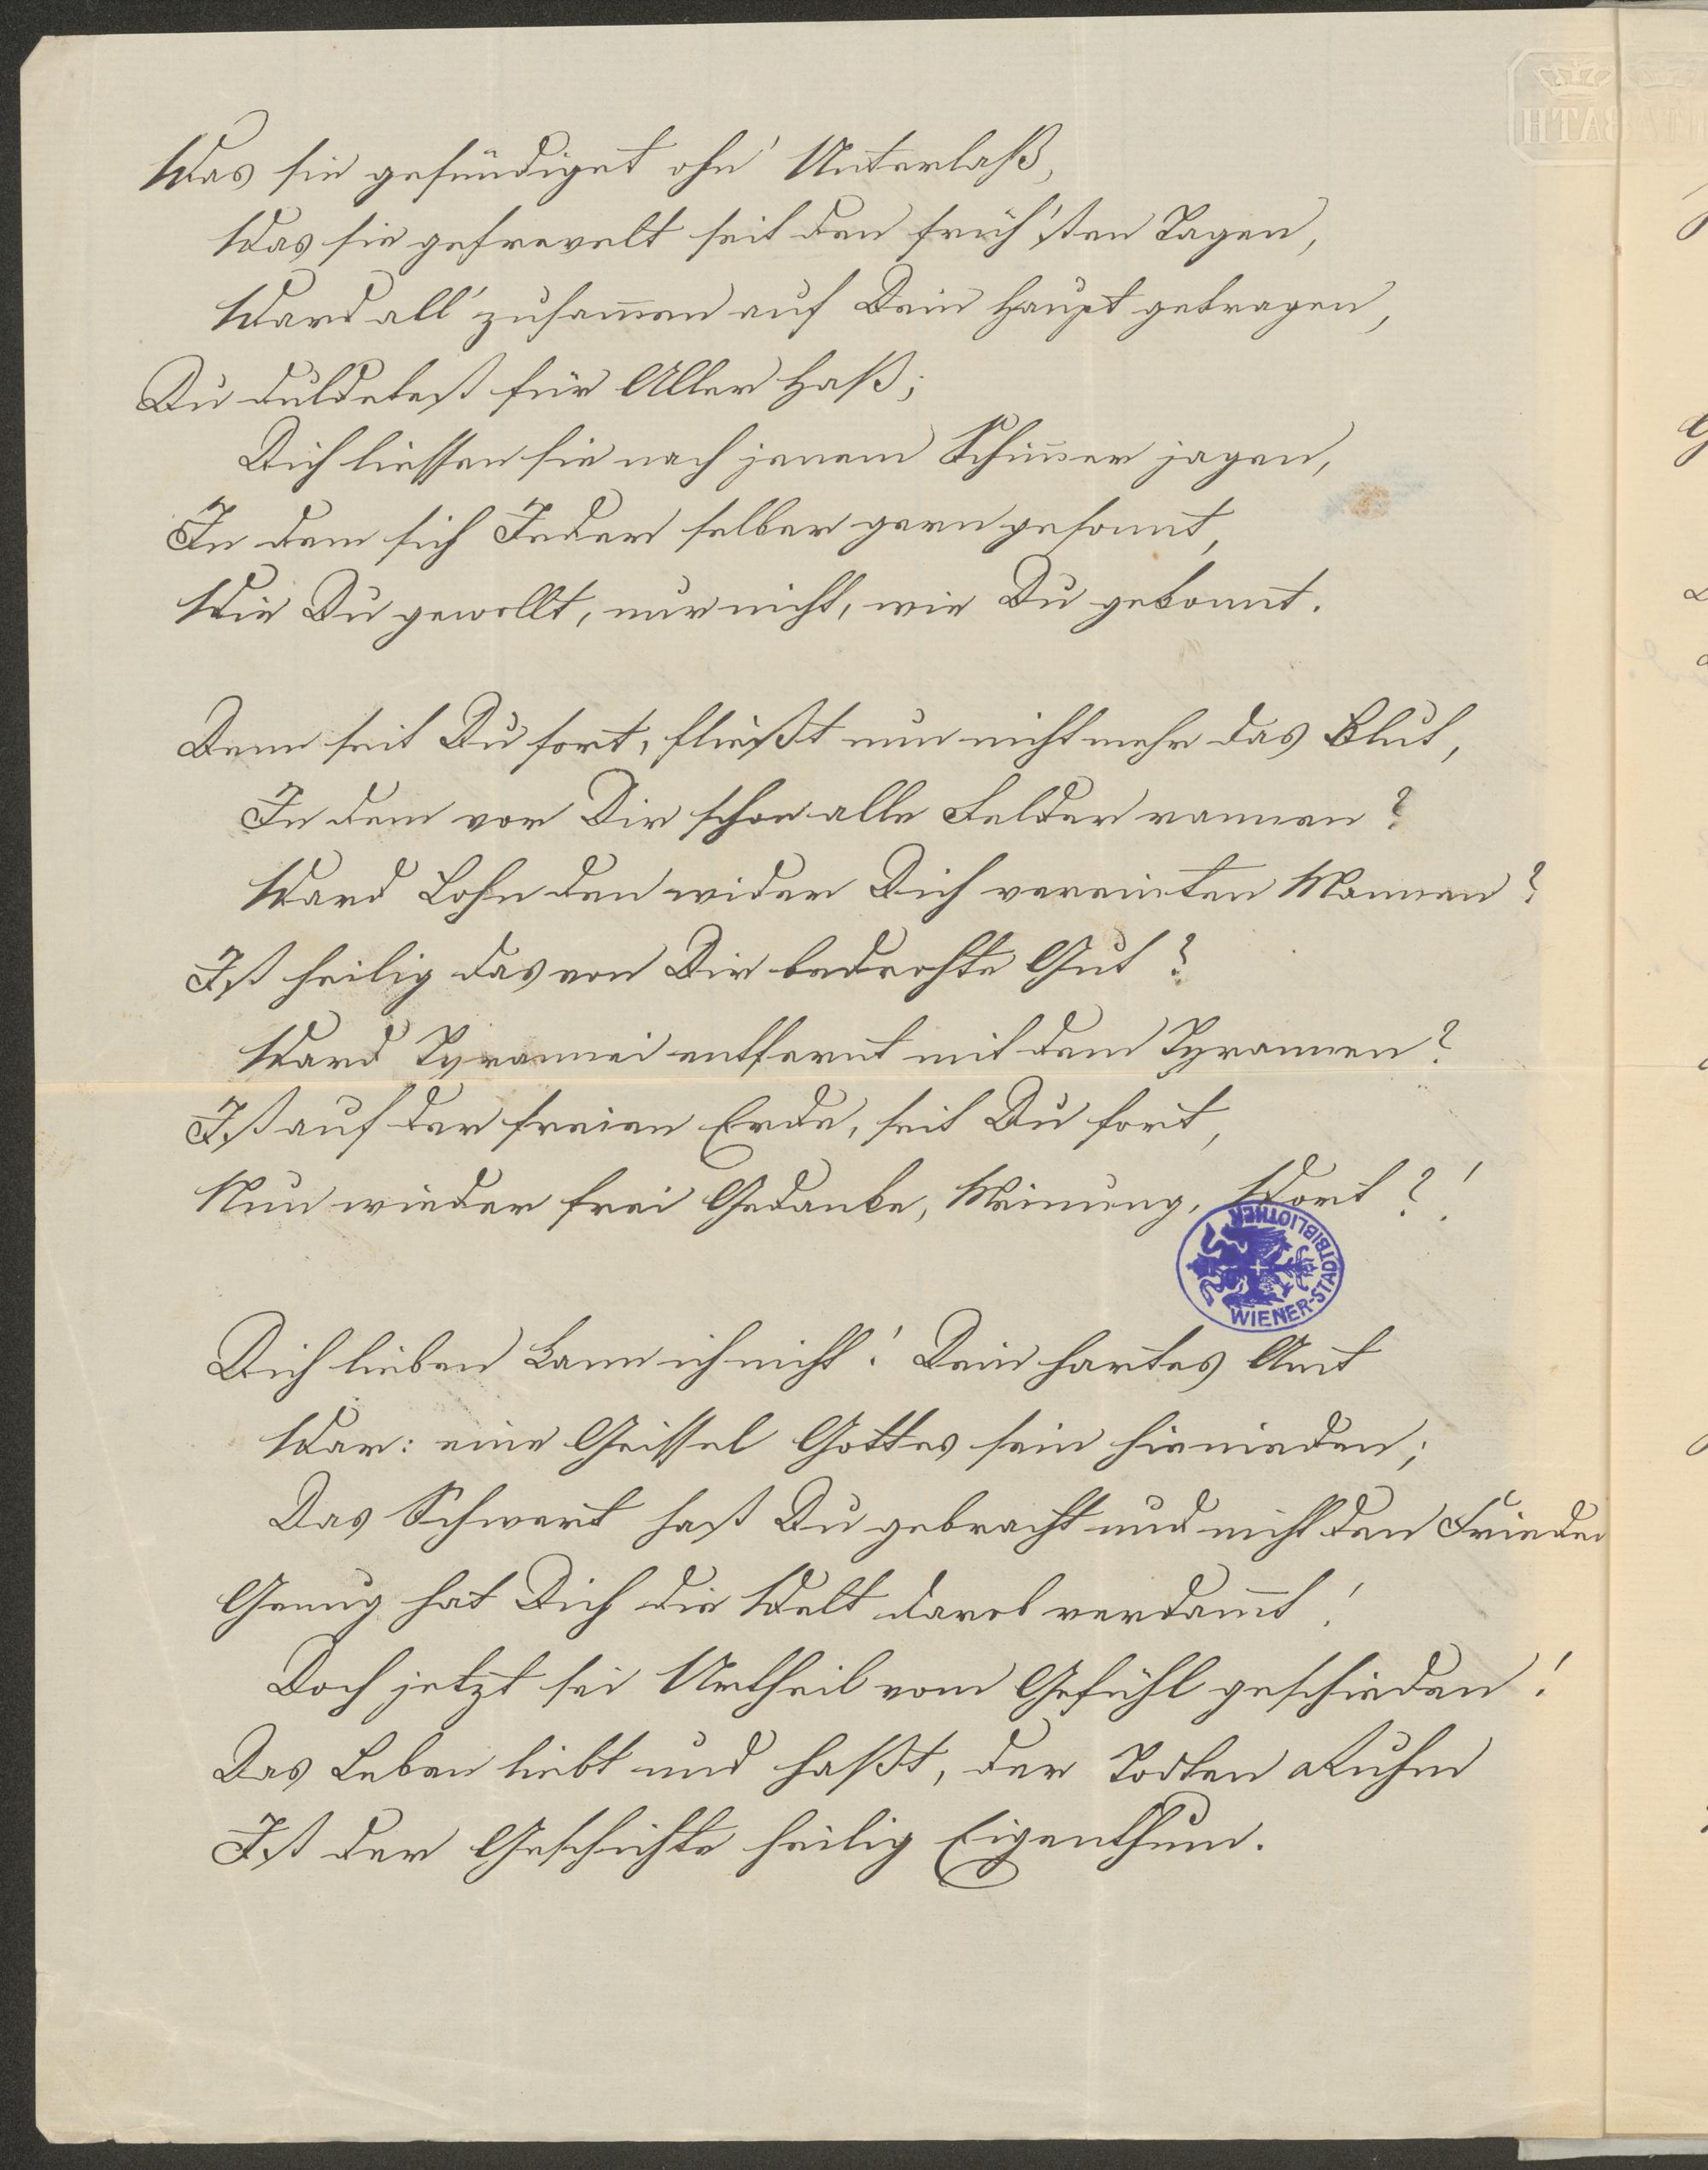 Was sie gesündiget ohn' Unterlaß,
Was sie gefrevelt seit den früh'sten Tagen,
Ward all' zusam̄en auf Dein Haupt getragen,
Du duldetest für Aller Haß;
Dich liessen sie nach jenem Schim̄er jagen,
In dem sich Jeder selber gern gesonnt,
Wie Du gewollt, nur nicht, wie Du gekonnt.
Denn seit Du fort, fließt nun nicht mehr das Blut,
In dem vor Dir schon alle Felder rannen?
Ward Lohn den wider Dich vereinten Mannen?
Ist heilig das von Dir bedrohte Gut?
Ward Tyrannei entfernt mit dem Tyrannen?
Ist auf der freien Erde, seit Du fort,
Nun wieder frei Gedanke, Meinung, Wort?!
WIENER-STADTBIBLIOTHEK
Dich lieben kann ich nicht! Dein hartes Amt
War: eine Geissel Gottes sein hienieden;
Das Schwert hast Du gebracht und nicht den Frieden
Genug hat Dich die Welt darob verdam̄t!
Doch jetzt sei Urtheil vom Gefühl geschieden!
Das Leben liebt und haßt, der Todten Ruhm
Ist der Geschichte heilig Eigenthum.